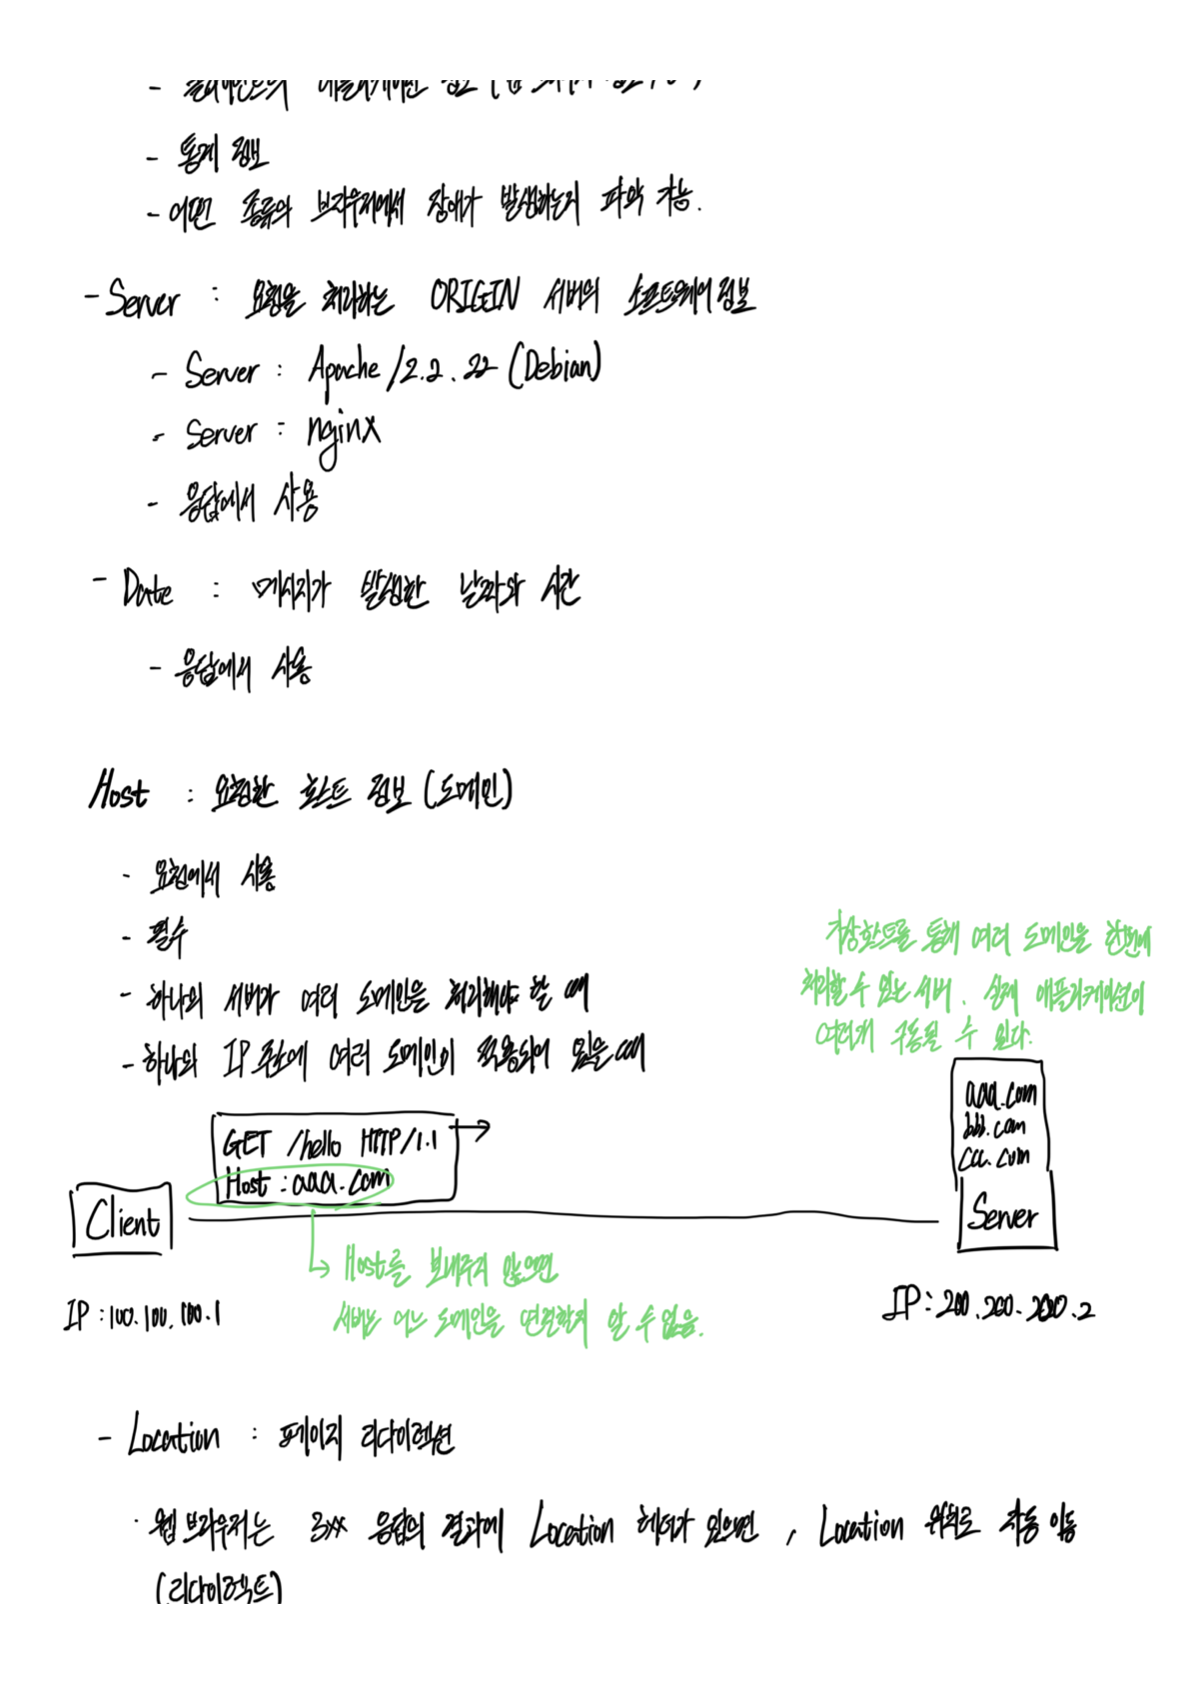 - 클라이언트의 애플리케이션 정보 (웹 브라우저 정보, 등)
- 통계 정보
- 어떤 종류의 브라우저에서 장애가 발생하는지 파악 가능.
- Server : 요청을 처리하는 ORIGIN 서버의 소프트웨어 정보
- Server : Apache/2.2.22 (Debian)
- Server : nginx
- 응답에서 사용
- Date : 메시지가 발생한 날짜와 시간
- 응답에서 사용
Host : 요청한 호스트 정보 (도메인)
- 요청에서 사용
- 필수
- 하나의 서버가 여러 도메인을 처리해야 할 때
- 하나의 IP 주소에 여러 도메인이 적용되어 있을 때
가상호스트를 통해 여러 도메인을 한번에
처리할 수 있는 서버. 실제 애플리케이션이
여러개 구동될 수 있다.
GET /hello HTTP/1.1
Host : aaa.com
aaa.com
bbb.com
ccc.com
Client
Server
Host를 보내주지 않으면
서버는 어느 도메인을 연결할지 알 수 없음.
IP : 100.100.100.1
IP : 200.200.200.2
- Location : 페이지 리다이렉션
· 웹 브라우저는 3xx 응답의 결과에 Location 헤더가 있으면, Location 위치로 자동 이동
(리다이렉트)